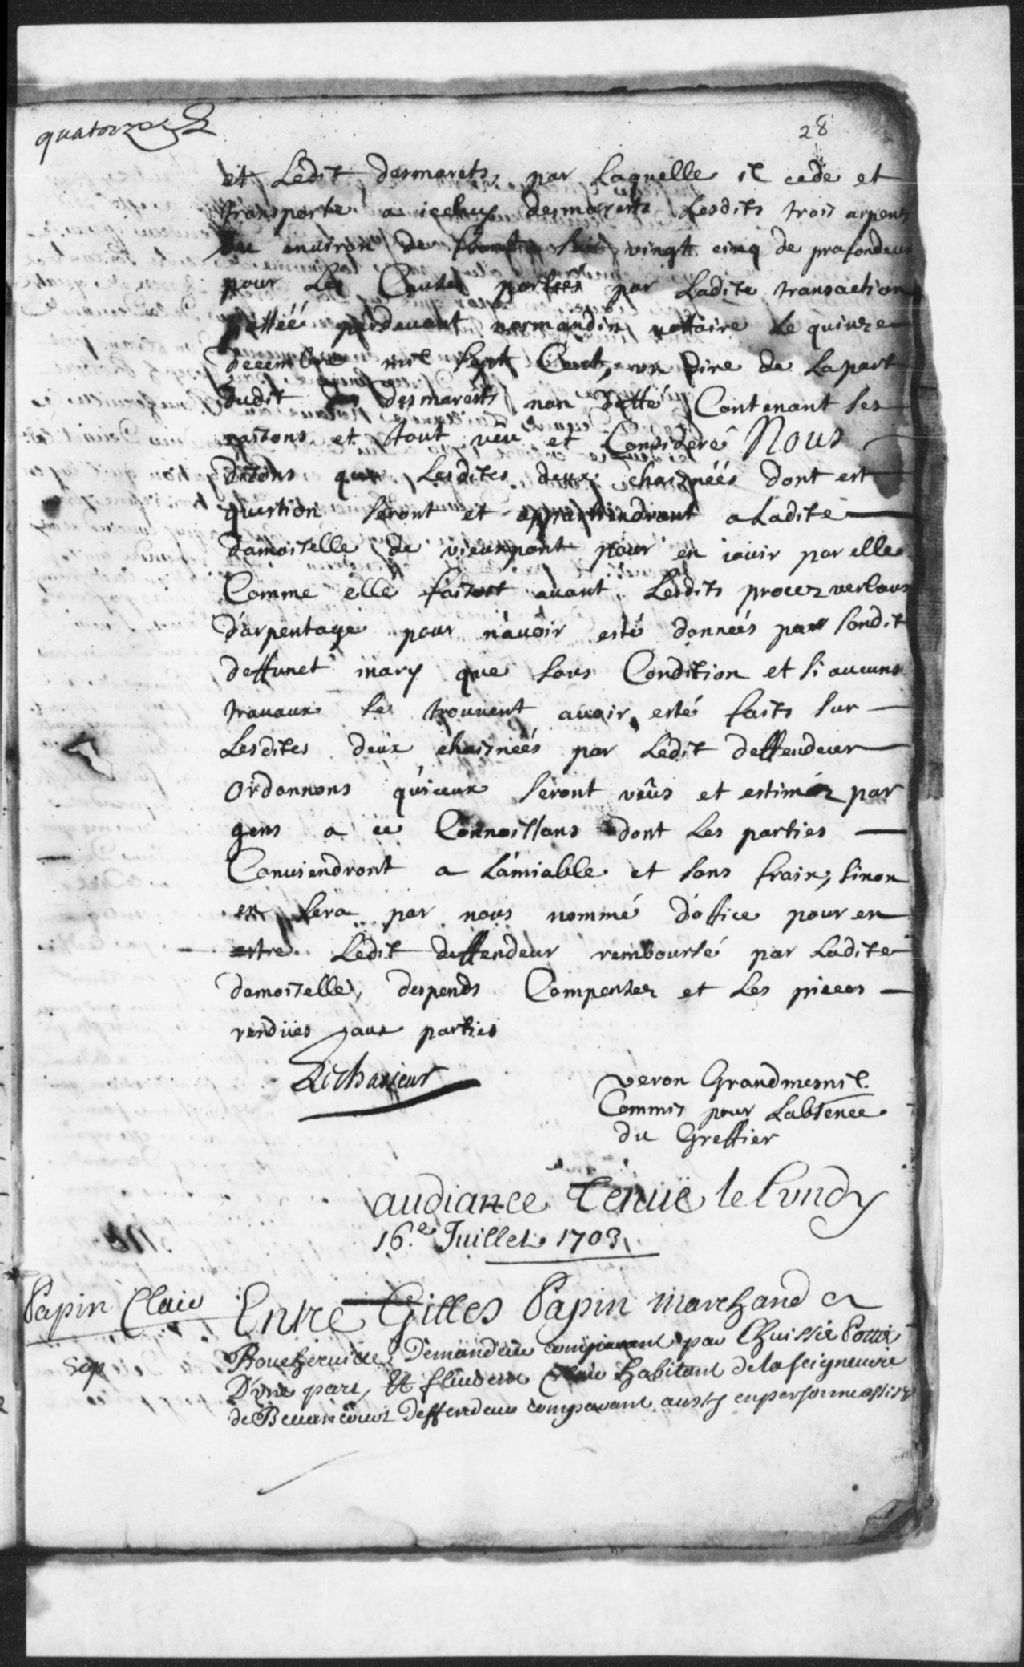 quatorze
28
et Ledit desmarets, par Laquelle il cede et
transporte a icelluy desmarests Lesdits trois arpents
ou environ de sur vingt cinq de profondeur
pour Les Causes portées par Ladite transaction
passéé pardevant normandin nottaire Le quinze
decembre mil sept Cent, un dire de La part
dudit desmarests non datté Contenant ses
raisons et tout veu et Consideré Nous
disons que Lesdites deux chaisnéés dont est
question seront et appartiendront a Ladite
damoiselle de vieuxpont pour en jouir par elle
Comme elle faisoit avant Lesdits procez verbaux
d'arpentage pour n'avoir esté donnéés par sondit
deffunct mary que sous Condition et si aucuns
travaux se trouvent avoir estés faits sur
Lesdites deux chaisnéés par Ledit deffendeur
ordonnons qu'iceux seront vûs et estiméz par
gens a ce Connoissans dont Les parties
Conviendront a L'amiable et sans frais, sinon
en sera par nous nommé d'office pour en
estre Ledit deffendeur remboursé par Ladite
damoiselle, despends Compensez et Les pieces
rendües aux parties
Lechasseur
veron Grandmesnil
Commis pour L'absence
du Greffier
audiance Tenuë le Lundy
16.e Juillet 1703
Papin Claie
Entre Gilles Papin marchand a
Boucherville Demandeur comparant par L'huissier Pottier
D'une part, Et habitant de la seigneurie
de Becancourt Deffendeur comparant aussy en personne assisté